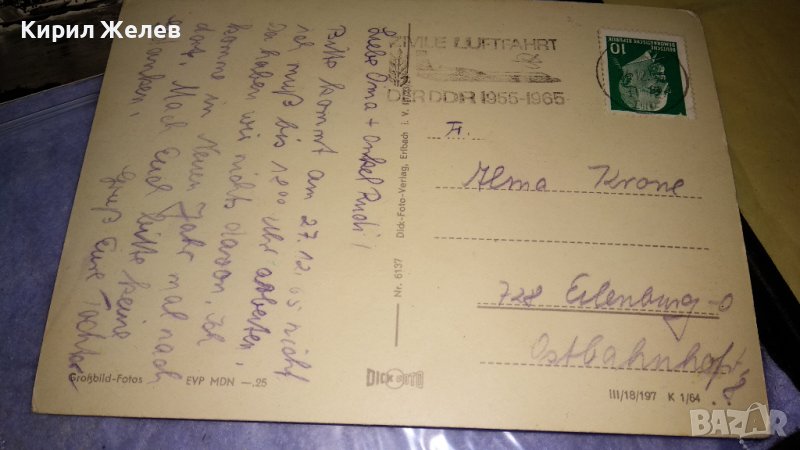 Кирил Желев
ZIVILE LUFTFAHRT
DER DDR 1955-1965
10
DEUTSCHE
DEMOKRATISCHE REPUBLIK
Liebe Oma + Onkel Rudi!
Bitte kommt am 27.12.65 nicht
ich muß bis 1800 Uhr arbeiten,
Da haben wir nichts davon. Ich
komme im Neuen Jahr mal nach
dort. Macht Euch bitte keine
Gruß Eure Tochter
Fr.
Alma Krone
728 Eilenburg-O
Ostbahnhofstr.
Nr. 6137 Dick-Foto-Verlag, Erlbach i. V.
Großbild-Fotos EVP MDN —.25
DICK FOTO
III/18/197 K 1/64
BAZAR